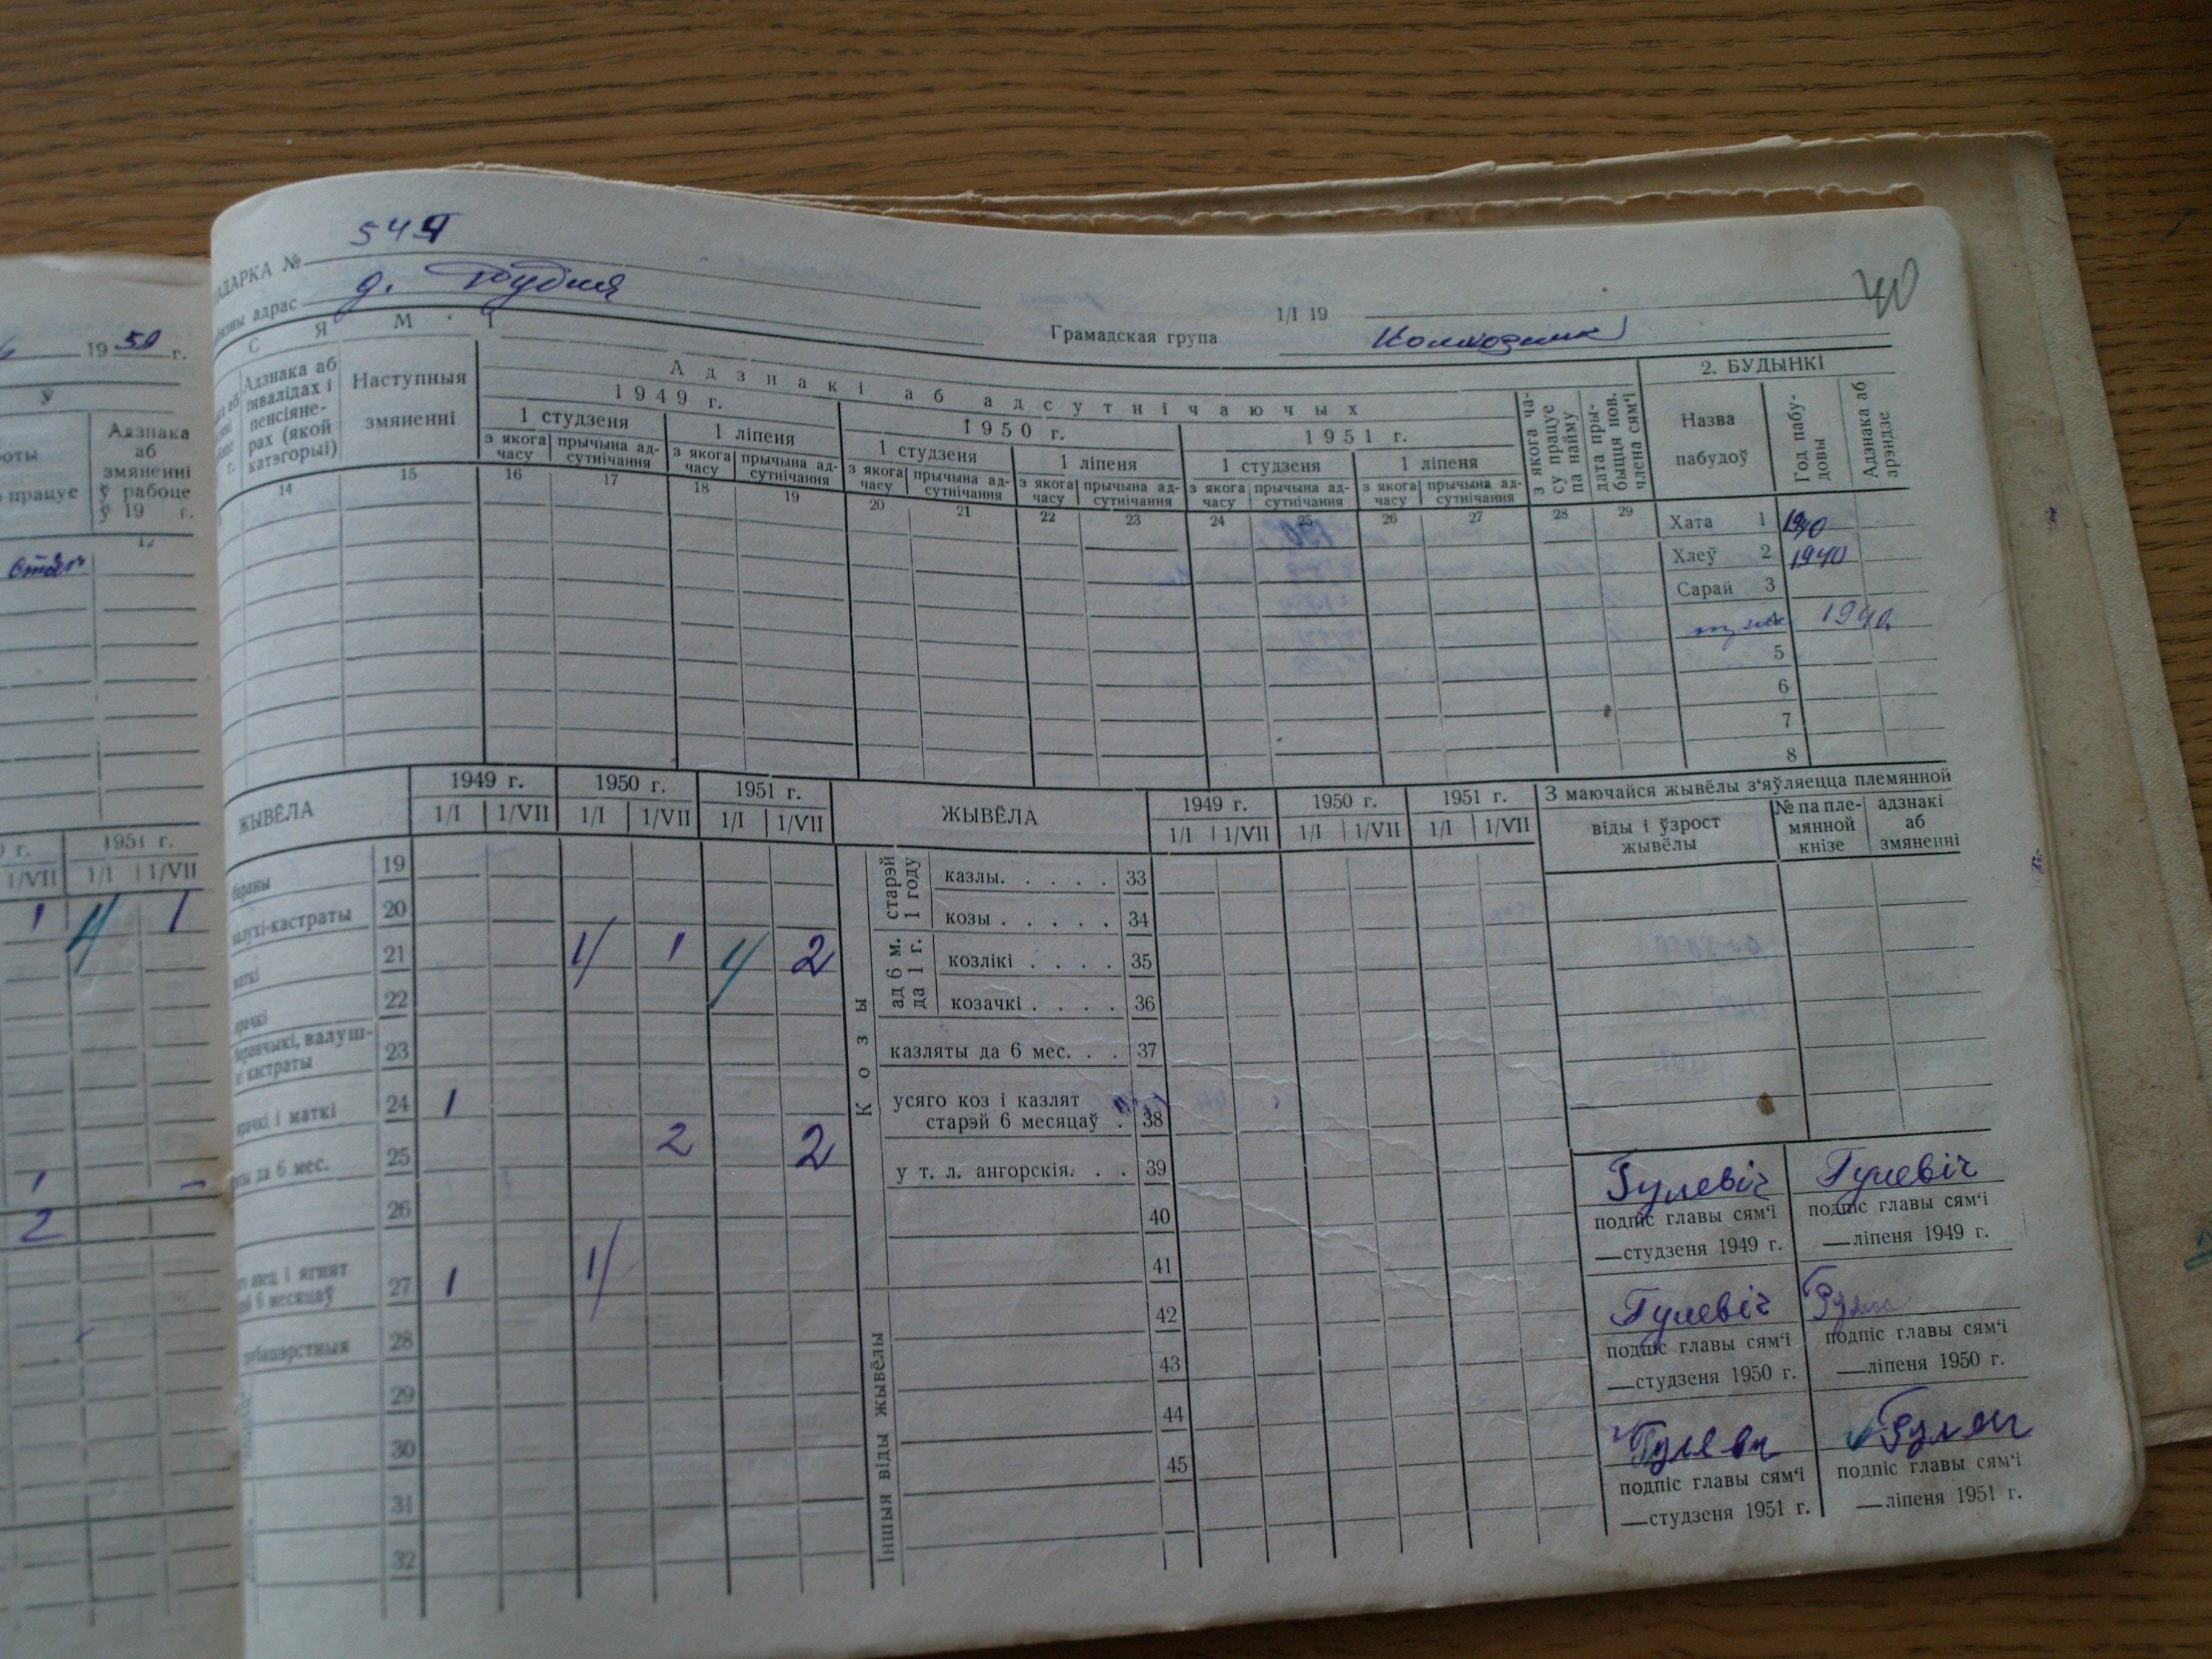 АДАРКА № 549
адрас д. Грудня
40
1/I 19
Грамадская група Колхозник
19 50 г.
С Я М ' І
Адзнака аб інвалідах і пенсіяне-
рах (якой катэгорыі)
Наступныя
змяненні
Адзнакі аб адсутнічаючых
1949 г. 1950 г. 1951 г.
1 студзеня 1 ліпеня 1 студзеня 1 ліпеня 1 студзеня 1 ліпеня
з якога часу прычына ад-сутнічання з якога часу прычына ад-сутнічання з якога часу прычына ад-сутнічання з якога часу прычына ад-сутнічання з якога часу прычына ад-сутнічання з якога часу прычына ад-сутнічання
з якога ча-
су працуе
па найму
дата пры-
быцця нов.
члена сям'і
2. БУДЫНКІ
Назва
пабудоў
Год пабу-
довы
Адзнака аб
арэндзе
14 15 16 17 18 19 20 21 22 23 24 25 26 27 28 29
Хата 1 1940
Хлеў 2 1940
Сарай 3
1940
5
6
7
8
У
оты
працуе
Адзнака
аб
змяненні
ў рабоце
ў 19 г.
12
1951 г.
1/VII 1/I 1/VII
1 1 1
1 –
2
ЖЫВЁЛА 1949 г. 1950 г. 1951 г.
1/I 1/VII 1/I 1/VII 1/I 1/VII
бараны 19
валухі-кастраты 20
маткі 21 1 1 1 2
ярачкі 22
баранчыкі, валуш-
кі кастраты 23
ярачкі і маткі 24 1
да 6 мес. 25 2 2
26
авец і ягнят
6 месяцаў 27 1 1
грубашэрстныя 28
29
30
31
32
ЖЫВЁЛА 1949 г. 1950 г. 1951 г.
1/I 1/VII 1/I 1/VII 1/I 1/VII
Козы
старэй
1 году
казлы. . . . . 33
козы . . . . . 34
ад 6 м.
да 1 г.
козлікі . . . . 35
козачкі . . . . 36
казляты да 6 мес. . . 37
усяго коз і казлят
старэй 6 месяцаў . 38
у т. л. ангорскія. . . 39
40
41
Іншыя віды жывёлы
42
43
44
45
З маючайся жывёлы з'яўляецца племянной
віды і ўзрост
жывёлы
№ па пле-
мянной
кнізе
адзнакі
аб
змяненні
Гулевіч Гулевіч
подпіс главы сям'і подпіс главы сям'і
—студзеня 1949 г. —ліпеня 1949 г.
Гулевіч
подпіс главы сям'і подпіс главы сям'і
—студзеня 1950 г. —ліпеня 1950 г.
подпіс главы сям'і подпіс главы сям'і
—студзеня 1951 г. —ліпеня 1951 г.